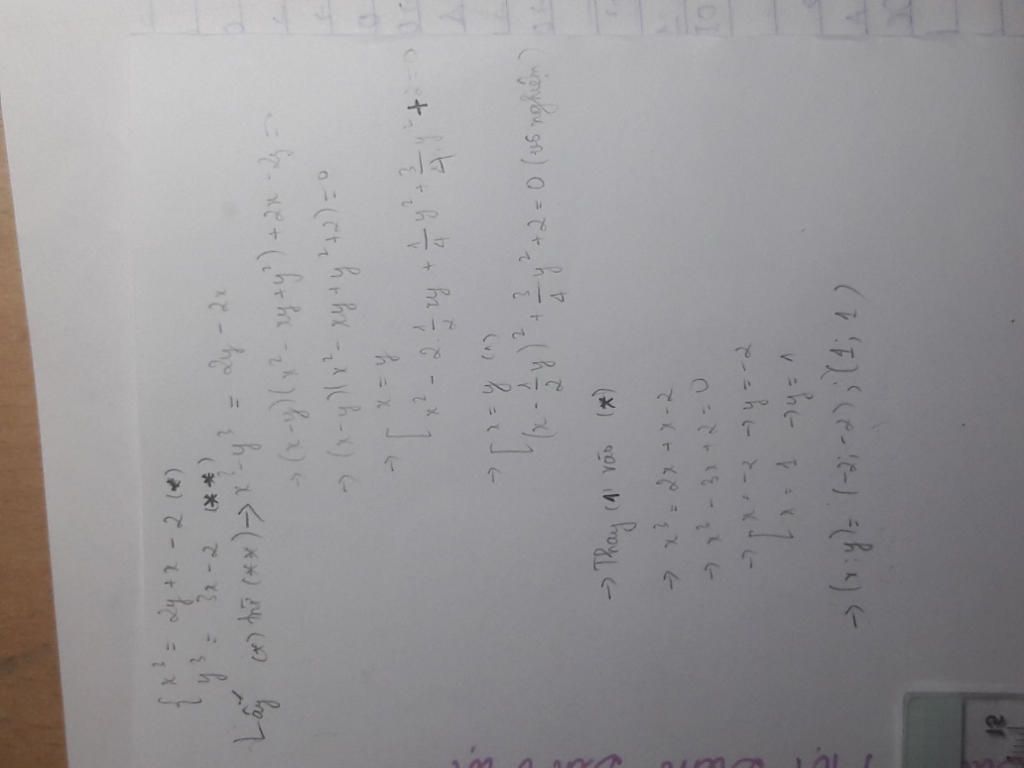 { x³ = 2y + x - 2 (*)
y³ = 3x - 2 (**)
Lấy (*) trừ (**) → x³ - y³ = 2y - 2x
→ (x-y)(x² - xy + y²) + 2x - 2y =
→ (x-y)(x² - xy + y² + 2) = 0
→ [ x = y
x² - 2.1/2 xy + 1/4 y² + 3/4 y² + 2 = 0
→ [ x = y (1)
(x - 1/2 y)² + 3/4 y² + 2 = 0 (vô nghiệm)
→ Thay (1) vào (*)
→ x³ = 2x + x - 2
→ x³ - 3x + 2 = 0
→ [ x = -2 → y = -2
x = 1 → y = 1
→ (x;y) = (-2;-2); (1; 1)
12